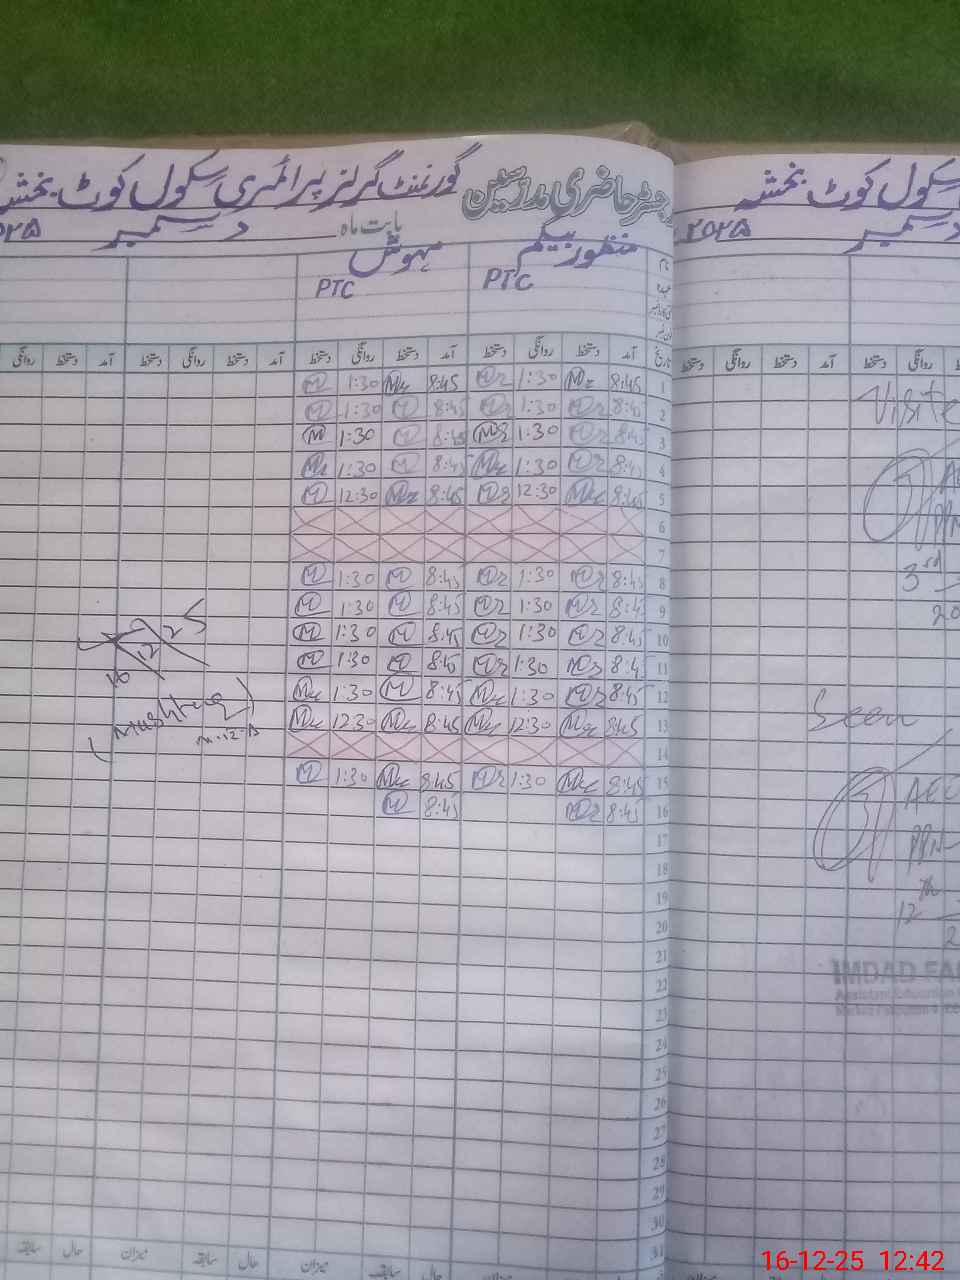 رجسٹر حاضری مدرسین گورنمنٹ گرلز پرائمری سکول کوٹ بخشہ
بابت ماہ دسمبر
نام منظور بیگم مہوش
عہدہ PTC PTC
تاریخ آمد دستخط روانگی دستخط آمد دستخط روانگی دستخط آمد دستخط روانگی دستخط آمد دستخط روانگی
1 8:45 1:30 8:45 1:30
2 8:45 1:30 8:45 1:30
3 8:45 1:30 8:45 1:30
4 8:45 1:30 8:45 1:30
5 8:45 12:30 8:45 12:30
6
7
8 8:45 1:30 8:45 1:30
9 8:45 1:30 8:45 1:30
10 8:45 1:30 8:45 1:30
11 8:45 1:30 8:45 1:30
12 8:45 1:30 8:45 1:30
13 8:45 12:30 8:45 12:30
14
15 8:45 1:30 8:45 1:30
16 8:45 8:45
17
18
19
20
21
22
23
24
25
26
27
28
29
30
31
میزان حال سابقہ میزان حال سابقہ
16 12 25
(Mushtaq)
سکول کوٹ بخشہ
دسمبر 2025
دستخط روانگی دستخط آمد دستخط روانگی
Visite
3rd
Seen
AEO
12th
IMDAD
Assistant Education
16-12-25 12:42